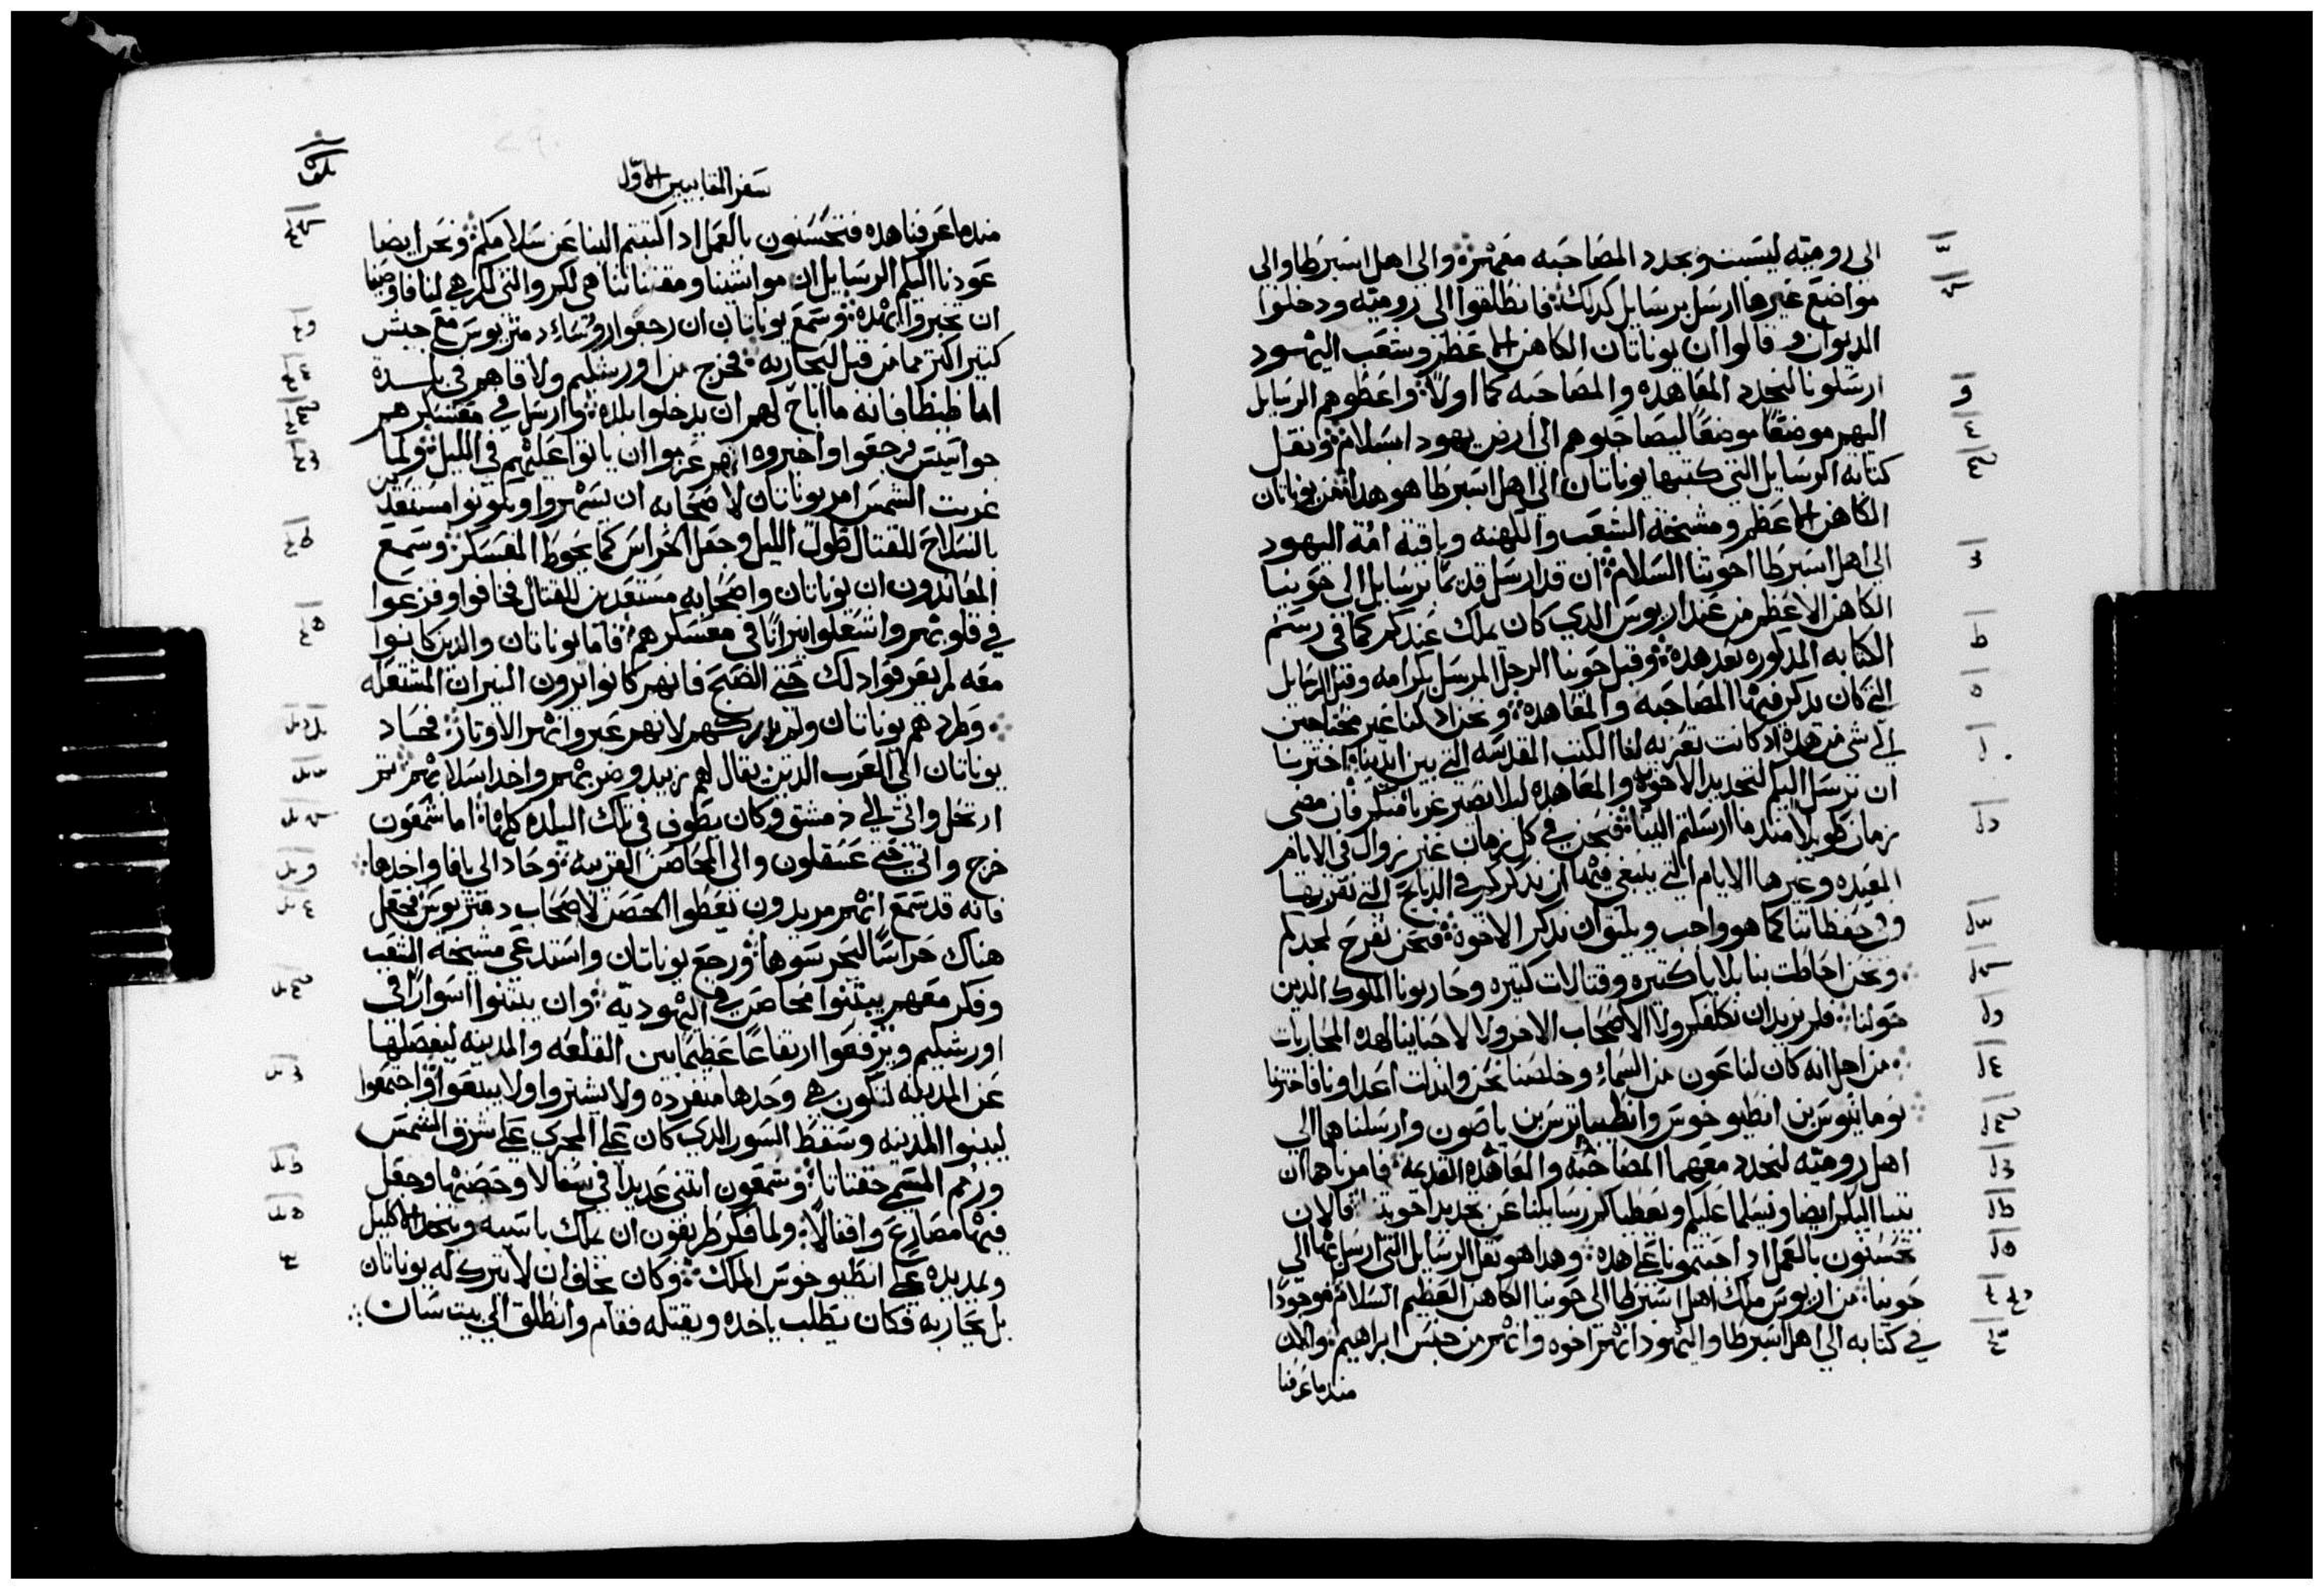 الى روميّه ليتبت ويجدد المصاحبه معهم ۞ والى اهل اسبرطا والى
مواضع غيرها ارسل برسايل كدلك ۞ فانطلقوا الى روميّه ودخلوا
الديوان وقالوا ان يوناتان الكاهن الاعظم وشعب اليهود
ارسلونا لنجدد المعاهده والمصاحبه كما اولاً ۞ واعطوهم الرسايل
اليهم موضعًا موضعًا ليصاحبوهم الى ارض يهودا بسلام ۞ ونقل
كتابه الرسايل التي كتبها يوناتان الى اهل اسبرطا هو هدا ۞ من يوناتان
الكاهن الاعظم ومشيخة الشعب والكهنه وباقية امة اليهود
الى اهل اسبرطا اخوتنا السلام ۞ ان قد ارسل قديمًا برسايل الى حونيا
الكاهن الاعظم من عند اريوس الدي كان يملك عندكم كما في رسم
الكتابه المدكوره بعد هده ۞ وقبل حونيا الرجل المرسل بكرامه وقبل الرسايل
التي كان يدكر فيها المصاحبه والمعاهده ۞ ونحن اد كنا غير محتاجين
الى شي من هده اد كانت تعزيه لنا الكتب المقدسه التي بين ايدينا ۞ اخترنا
ان نرسل اليكم لتجديد الاخوة والمعاهده ليلا نصير غربا منكم فان مضى
زمان طويل مند ما ارسلتم الينا ۞ فنحن في كل زمان غير زوال في الايام
المعيده وغيرها الايام التي ينبغي فيها ندكركم في الدبايح التي نقربها
وفي حفظاتنا كما هو واجب ويليق ان ندكر الاخوة ۞ فنحن نفرح لمجدكم
ونحن احاطت بنا بلايا كتيره وقتالات كتيره وحاربونا الملوك الدين
حولنا ۞ فلم نريد ان نكلفكم ولا الاصحاب الاخر ولا لاحبابنا لهده المحاربات
من اجل انه كان لنا عون من السماء وخلصنا نحن واندلت اعداونا فاخترنا
نومانيوس بن انطيوخوس وانطيباترس بن ياصون وارسلناهما الى
اهل روميّه لنجدد معهما المصاحبه والمعاهده القديمه ۞ فامرناهما ان
يتيا اليكم ايضا ويسلما عليكم ويعطياكم رسايلنا عن تجديد اخوتنا ۞ فالان
تحسنون بالعمل اد اجبتمونا على هده ۞ وهدا هو نقل الرسايل التي ارسل بها الى
حونيا ۞ من اريوس ملك اهل اسبرطا الى حونيا الكاهن العظيم السلام ۞ موجودًا
في كتابه الى اهل اسبرطا واليهود انهم اخوه وانهم من جنس ابراهيم ۞ والان
مند ما عرفنا
سفر المقابيين الاوّل
مند ما عرفنا هده فتحسنون بالعمل اد اكتبتم الينا عن سلامكم ۞ ونحن ايضا
عودنا اليكم الرسايل ان مواشينا ومقتناتنا هي لكم والتي لكم هي لنا فاوصينا
ان يخبروا بهده ۞ وسمع يوناتان ان رجعوا روساء دمتريوس مع جيش
كتير اكتر مما من قبل ليحاربه ۞ فخرج من اورشليم ولاقاهم في بلدة
اماطيطا فانه ما اباح لهم ان يدخلوا بلده ۞ وارسل في معسكرهم
جواسيس فرجعوا واخبروه انهم عزموا ان ياتوا عليهم في الليل ۞ ولما
غربت الشمس امر يوناتان لاصحابه ان يسهروا ويكونوا مستعدين
بالسلاح للقتال طول الليل وجعل الحراس كما يحوط المعسكر ۞ وسمع
المعاندون ان يوناتان واصحابه مستعدين للقتال فخافوا وفزعوا
في قلوبهم واشعلوا نيرانًا في معسكرهم ۞ فاما يوناتان والدين كانوا
معه لم يعرفوا دلك حتى الصبح فانهم كانوا يرون النيران المشتعله
۞ وطردهم يوناتان ولم يدركهم لانهم عبروا نهر الاوتار ۞ فحاد
يوناتان الى العرب الدين يقال لهم زبيد وضربهم واخد اسلابهم ۞ تم
ارتحل واتى الى دمشق وكان يطوف في تلك البلده كلها ۞ اما شمعون
خرج واتى حتى عسقلون والى المحاصن القريبه ۞ وحاد الى يافا واخدها
فانه قد سمع انهم مريدون يعطوا الحصن لاصحاب دمتريوس فجعل
هناك حراسًا ليحرسوها ۞ ورجع يوناتان واستدعى مشيخة الشعب
وفكر معهم يبتنوا محاصن في اليهودية ۞ وان يبتنوا اسوارًا في
اورشليم ويرفعوا ارتفاعًا عظيمًا بين القلعه والمدينه ليفصلها
عن المدينه لتكون هي وحدها منفرده ولا يشتروا ولا يبيعوا ۞ واجتمعوا
ليبنوا المدينه وسقط السور الدي كان على المجرى على شرق الشمس
ورُمم المسمى حفناتا ۞ وشمعون ابتنى عديدا في سفالا وحصّنها وجعل
فيها مصاريع واقفالاً ۞ ولما فكر طريفون ان يملك باسيه ويتخد الاكليل
ويمد يده على انطيوخوس الملك ۞ وكان يخاف ان لا يتركه يوناتان
بل يحاربه فكان يطلب ياخده ويقتله فقام وانطلق الى بيت شان ۞